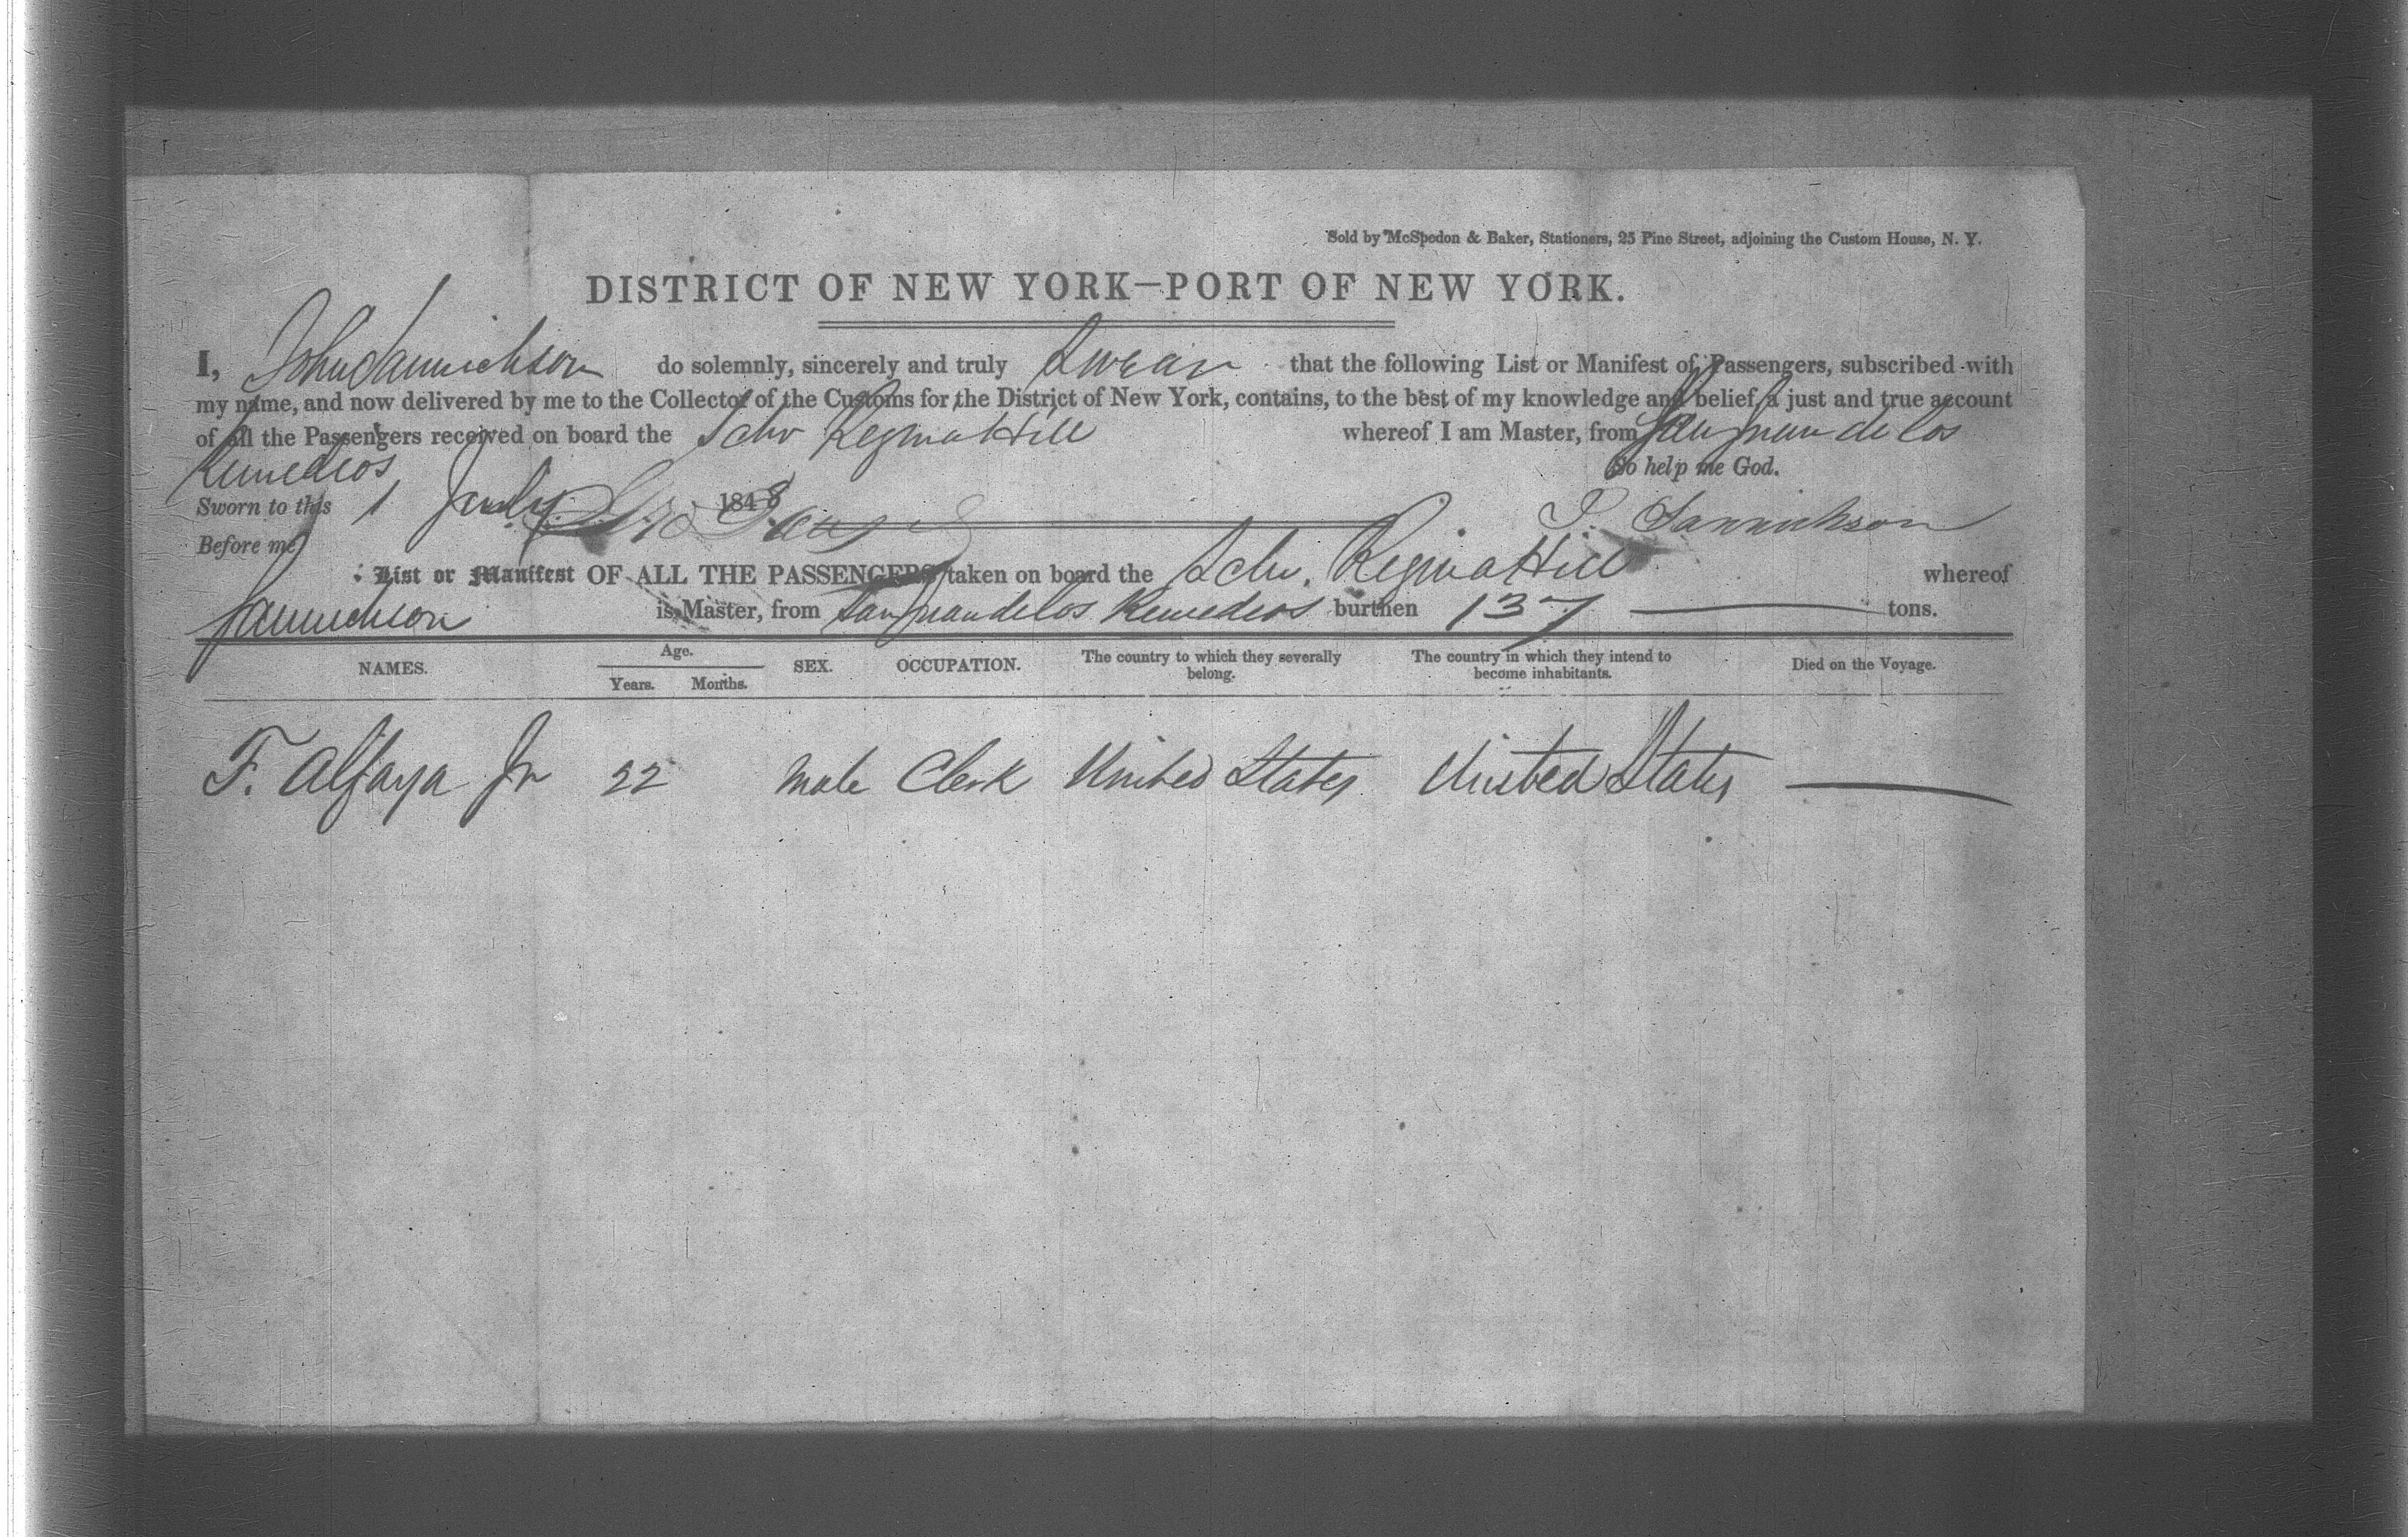 Sold by McSpedon & Baker, Stationers, 25 Pine Street, adjoining the Custom House, N. Y.
DISTRICT OF NEW YORK—PORT OF NEW YORK.
I, John Sannickson do solemnly, sincerely and truly Swear that the following List or Manifest of Passengers, subscribed with
my name, and now delivered by me to the Collector of the Customs for the District of New York, contains, to the best of my knowledge and belief, a just and true account
of all the Passengers received on board the Schr Regina Hill whereof I am Master, from San Juan de los
Remedios So help me God.
Sworn to this 1 July 1848 J. Sannickson
Before me
List or Manifest OF ALL THE PASSENGERS taken on board the Schr. Regina Hill whereof
Sannickson is Master, from San Juan de los Remedios burthen 137 tons.
NAMES. Age. Years. Months. SEX. OCCUPATION. The country to which they severally belong. The country in which they intend to become inhabitants. Died on the Voyage.
F. Alfaya Jr 22 Male Clerk United States United States —